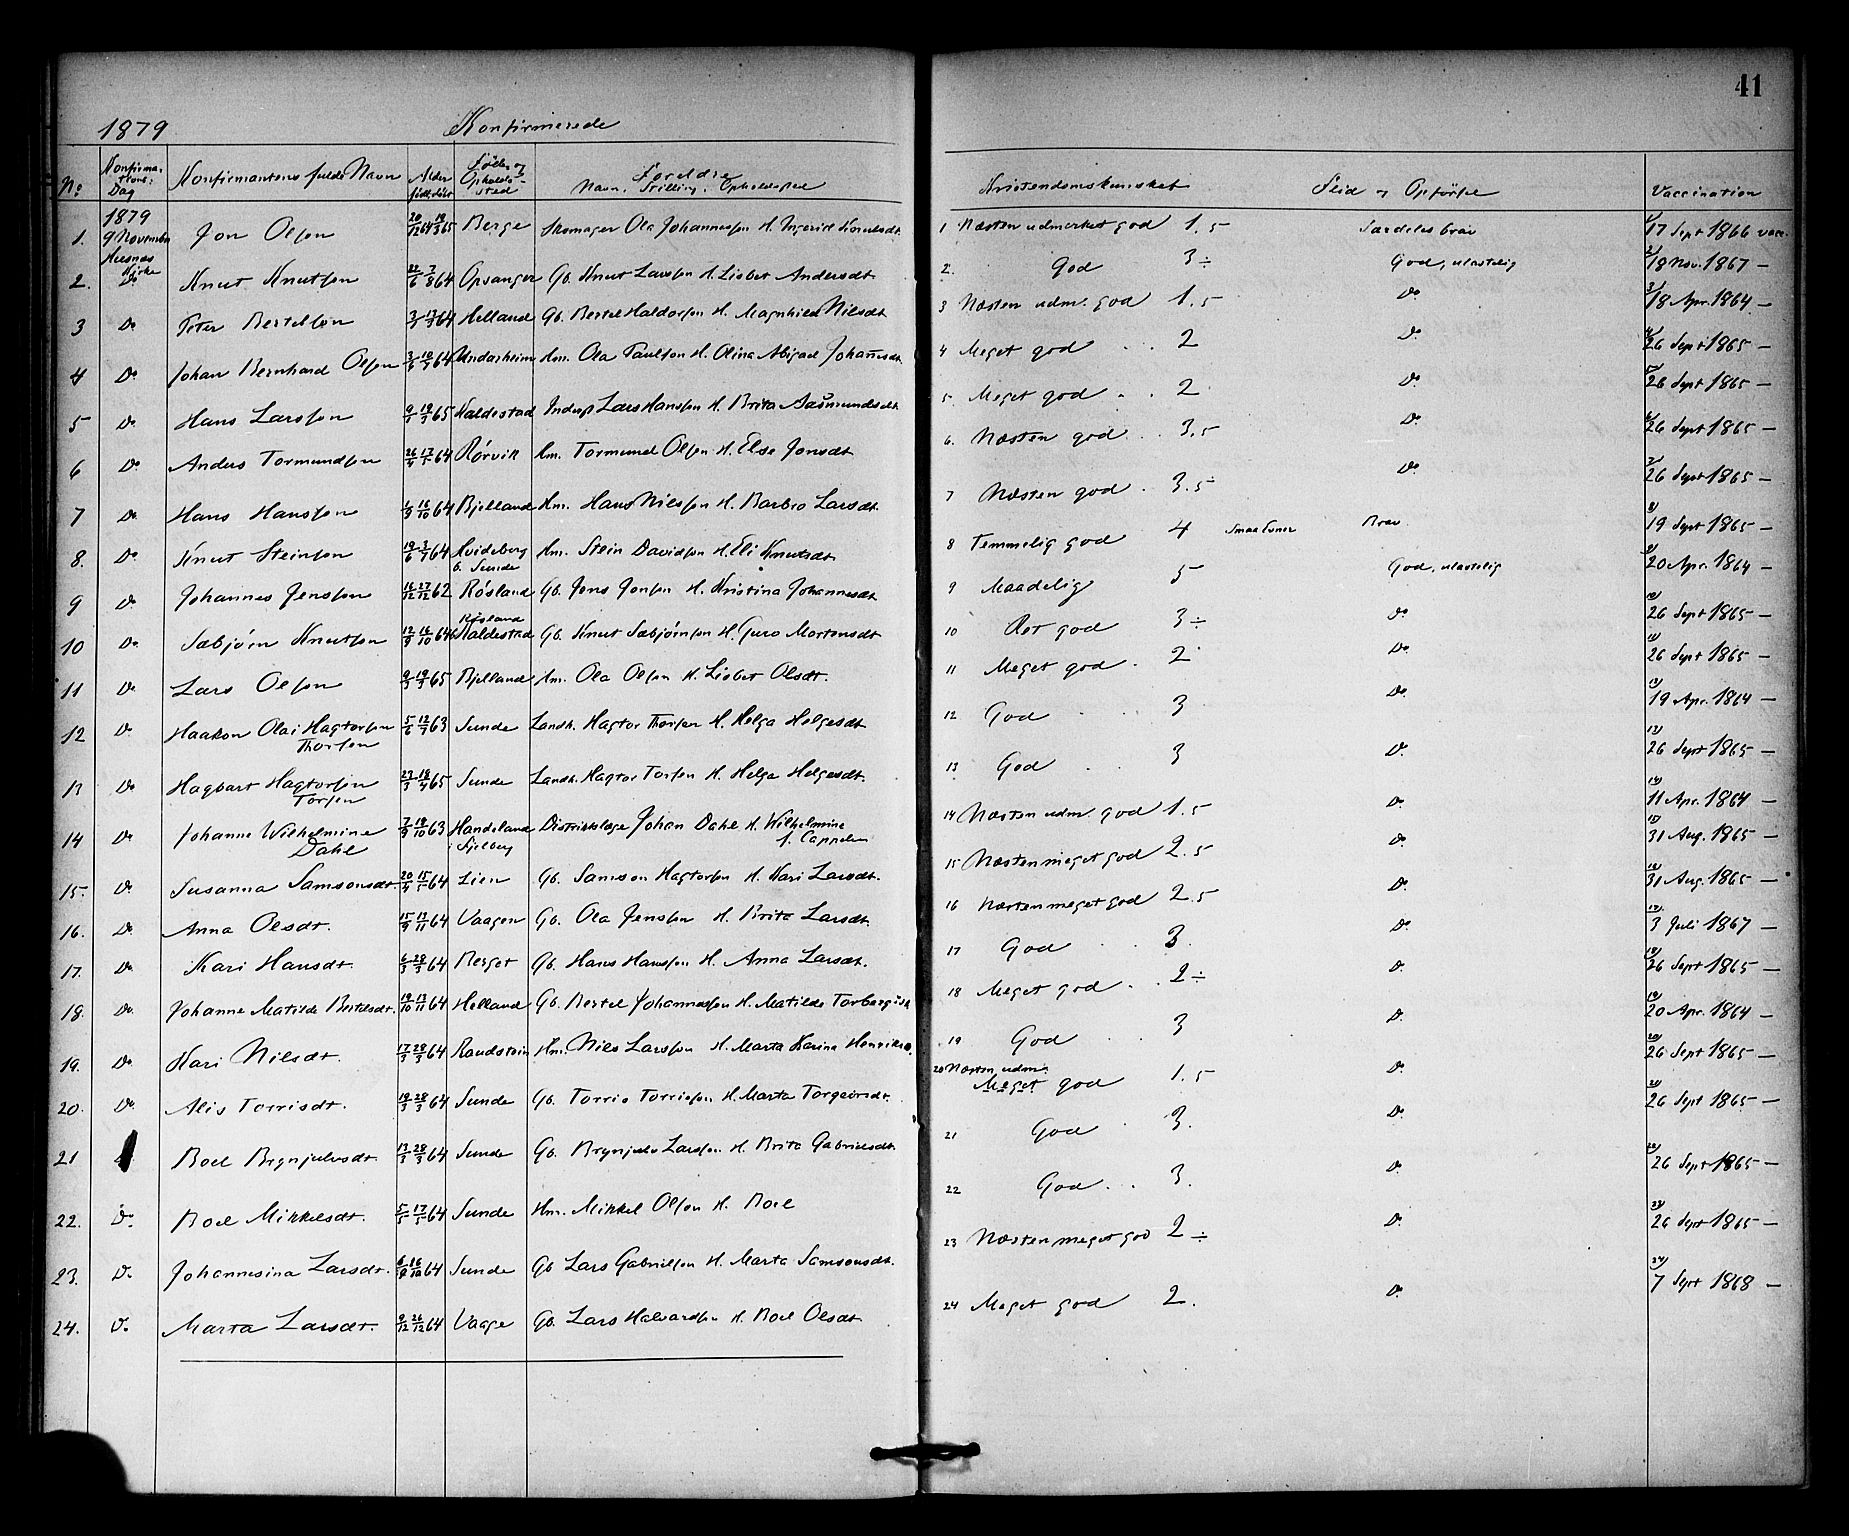 1879 Konfirmerede
No Konfirma-tions-Dag Konfirmantens fulde Navn Alder født, døbt Føde- og Opholds-sted Forældre Navn. Stilling. Opholdssted
1. 1879 9 November Husnæs Kirke Jon Olsen 20/12 64 19/3 65 Berge Skomager Ola Johannessen H. Ingerid Knutsdt.
2. Do Knut Knutsen 22/6 7/8 64 Opsanger Gb. Knut Larssen H. Lisbet Andersdt.
3 Do Peter Bertelsen 64 Helland Gb. Bertel Haldorsen H. Magnhild Nilsdt
4 Do Johan Bernhard Olsen 64 Undarheim Hm. Ola Paulsen H. Olina Abigael Johannesdt
5 Do Hans Larssen 65 Haldestad Inderst Lars Hanssen H. Brita Aasmundsdt.
6 Do Anders Tormundsen 64 Rørvik Hm. Tormund Olsen H. Else Jonsdt.
7 Do Hans Hanssen 16/10 64 Bjelland Hm. Hans Nilssen H. Barbro Larsdt.
8. Do Knut Steinsen 64 Hvideberg b. Sunde Hm. Stein Davidsen H. Eli Knutsdt.
9 Do Johannes Jenssen 16/12 27/12 62 Røsland Gb. Jens Jensen H. Kristina Johannesdt
10 Do Sæbjørn Knutsen 12/9 16/10 64 Røsland Haldestad Gb. Knut Sæbjørnsen H. Guro Mortensdt
11 Do Lars Olsen 65 Bjelland Hm. Ola Olsen H. Lisbet Olsdt.
12 Do Haakon Olai Hagtorsen Thorsen 63 Sunde Landh. Hagtor Thorsen H. Helga Helgesdt
13 Do Hagbart Hagtorsen Torsen 65 Sunde Landh. Hagtor Torsen H. Helga Helgesdt.
14 Do Johanne Wilhelmine Dahl 7/9 19/10 63 Handeland i Sjelberg Distriktslæge Johan Dahl H. Wilhelmine f. Cappelen
15. Do Susanna Samsonsdt. 64 Lien Gb. Samson Hagtorsen H. Kari Larsdt.
16. Do Anna Olsdt. 64 Vaagen Gb. Ola Jenssen H. Brita Larsdt.
17. Do Kari Hansdt. 6/3 28/3 64 Berget Gb. Hans Hanssen H. Anna Larsdt.
18. Do Johanne Matilde Bertelsdt. 19/10 13/11 64 Helland Gb. Bertel Johannessen H. Matilde
19. Do Kari Nilsdt. 17/3 28/3 64 Raudstein Hm. Nils Larssen H. Marta Karina
20. Do Alis Torrisdt. 19/3 28/3 64 Sunde Gb. Torris Torrissen H. Marta Torgeirsdt.
21 Boel Brynjulvsdt. 13/3 28/3 64 Sunde Gb. Brynjulv Larssen H. Brita Gabrielsdt.
22. Do Boel Mikkelsdt. 5/5 17/5 64 Sunde Hm. Mikkel Olsen H. Boel
23. Do Johannesina Larsdt. 16/10 64 Sunde Gb Lars Gabrielsen H. Marta Samsonsdt.
24. Do Marta Larsdt. 9/12 26/12 64 Vaage Gb. Lars Halvardsen H. Boel Olsdt
41
Kristendomskunskab Flid og Opførsel Vaccination
1 Næsten udmerket god 1.5 Særdeles brav 1/ 17 Sept 1866 vacc.
2. God 3 ÷ God, ulastelig 2/ 18 Nov. 1867 —
3 Næsten udm. god 1.5 Do 3/ 18 Apr. 1864 —
4 Meget god . . 2 Do 4/ 26 Sept 1865 —
5. Meget god . . 2 Do 5/ 26 Sept 1865 —
6. Næsten god . . 3.5 Do 6/ 26 Sept 1865 —
7 Næsten god . 3.5 Do 7/ 26 Sept 1865 —
8 Temmelig god 4 Smaa Evner Brav 8/ 19 Sept 1865 —
9 Maadelig 5 God, ulastelig 9/ 20 Apr. 1864 —
10 Ret god 3 ÷ Do 10/ 26 Sept 1865 —
11 Meget god . 2 Do 11/ 26 Sept 1865 —
12 God 3 Do 12/ 19 Apr. 1864 —
13 God . 3 Do 13/ 26 Sept 1865 —
14 Næsten udm. god 1.5 Do 14/ 11 Apr. 1864 —
15 Næsten meget god 2.5 Do 15/ 31 Aug. 1865 —
16 Næsten meget god 2.5 Do 16/ 31 Aug. 1865 —
17 God . . 3. Do 17/ 3 Juli 1867 —
18 Meget god . . 2 ÷ Do 18/ 26 Sept 1865 —
19 God . . 3 Do 19/ 20 Apr. 1864 —
20 Næsten udm. Meget god 1.5 Do 20/ 26 Sept 1865 —
21 God . 3. Do 21/ 26 Sept 1865 —
22 God . . . 3. Do 22/ 26 Sept 1865 —
23 Næsten meget god 2 ÷ Do 23/ 26 Sept 1865 —
24 Meget god 2. Do 24/ 7 Sept 1868 —